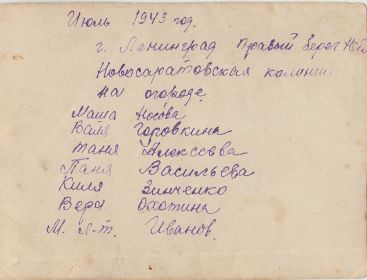 Июль 1943 год.
г. Ленинград Правый берег Невы
Новосаратовская колония
на огороде
Маша Носова
Валя Горовкина
Таня Алексеева
Паня Васильева
Киля Зинченко
Вера Охотина
М. л-т. Иванов.